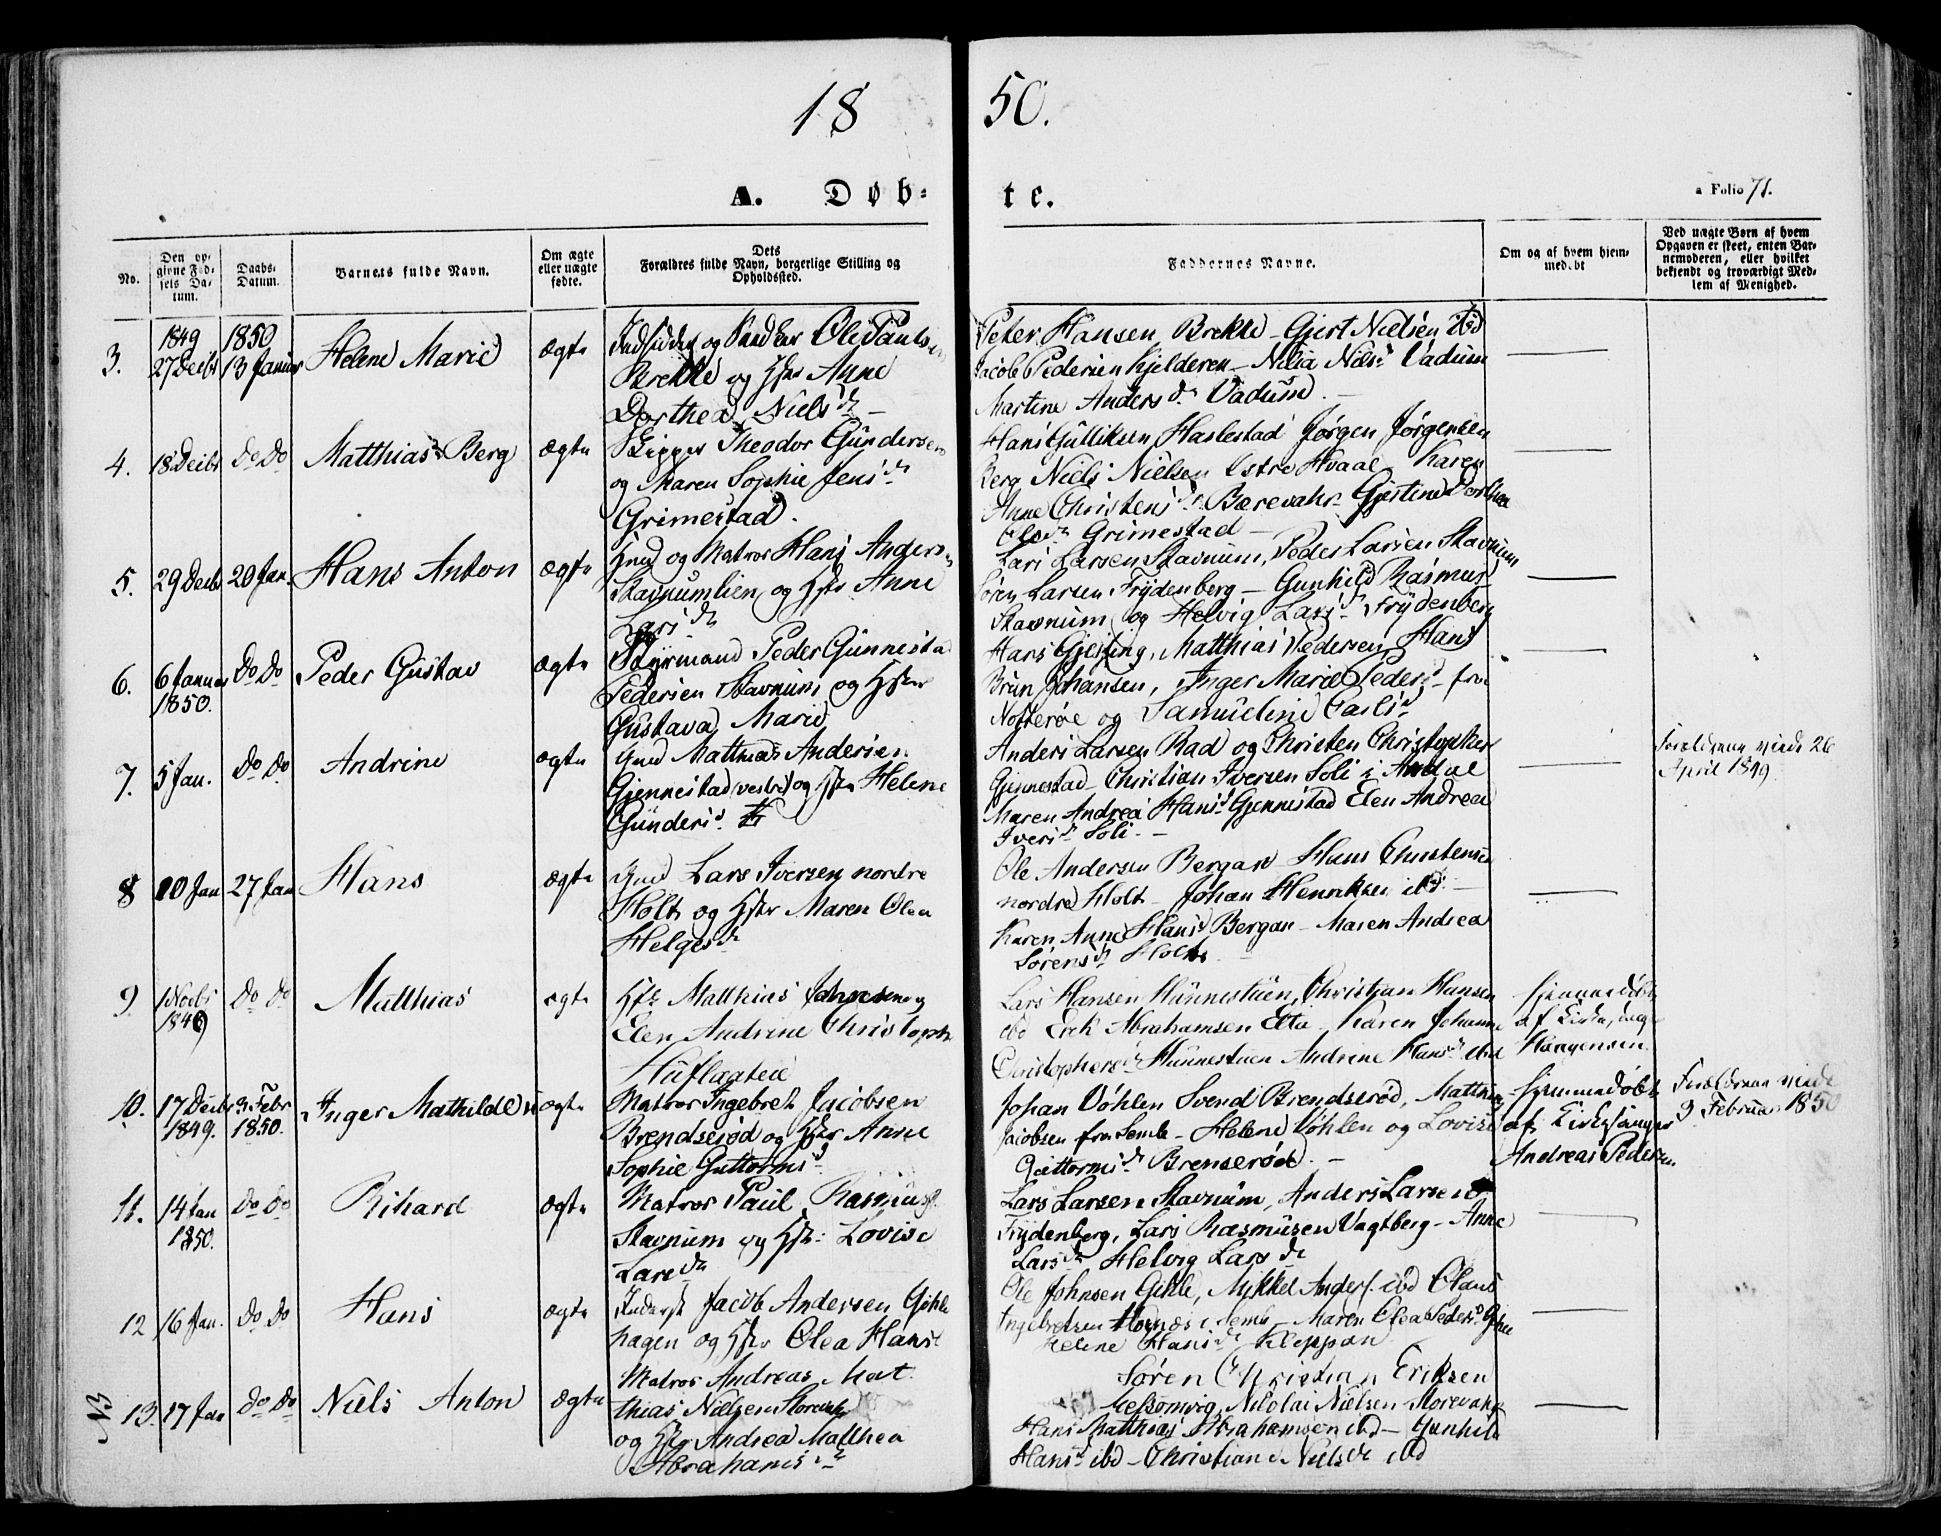 18 50.
A. Døb- te.
a Folio 71.
No.
Den op-
givne Fød-
sels Da-
tum.
Daabs-
Datum.
Barnets fulde Navn.
Om ægte
eller uægte
fødte.
Dets
Forældres fulde Navn, borgerlige Stilling og
Opholdssted.
Faddernes Navne.
Om og af hvem hjem-
medøbt
Ved uægte Børn af hvem
Opgaven er skeet, enten Bar-
nemoderen, eller hvilket
bekjendt og troværdigt Med-
lem af Menighed.
3.
1849
27 Decbr
1850
13 Januar
Helene Marie
ægte
og Ole Pauls
Brekke og Hstr Anne
Dorthea Nielsdr
Peter Hansen Brekke - Gjert Nielsen ibd
Jacob Pedersen Kjelderen - Nilsd. Vadum
Martine Andersdr Vadum.
4.
18 Decbr
Do Do
Matthias Berg
ægte
Skipper Theodor Gundersen
og Maren Sophie Jensdr
Grimestad.
Hans Gulliksen Haslestad Jørgen Jørgensen
Berg Niels Nielsen Østre Hvaal Karen
Anne Christensdr Bærevahr Gjertine
Olsdr Grimestad
5.
29 Decbr
20 Jan.
Hans Anton
ægte
Hmd og Matros Hans Anders
Stavnumlien og Hstr Anne
Larsdr
Lars Larsen Stavnum, Peder Larsen Stavnum
Søren Larsen Frydenberg - Gunhild Rasmusd
Stavnum og Helvig Larsdr Frydenberg
6.
6 Januar
1850.
Do Do
Peder Gustav
ægte
Styrmand Peder Gunnestad
Pedersen Stavnum og Hstr
Gustava Marie
Hans Gjersing, Matthias Pedersen Hans
Brun Johansen, Inger Marie Pedersd fra
Notterøe og Samueline Carlsd
7.
5 Jan.
Do Do
Andrine
ægte
Gmd Matthias Andersen
Gjennestad (vestre) og Hstr Helene
Gundersd.
Anders Larsen Rad og Christen Christopher
Gjennestad - Christian Iversen Soli i Andal
Maren Andrea Hansd Gjennestad Elen Andrea
Iversdr Soli -
Forældrene viede 26
April 1849.
8
10 Jan
27 Jan
Hans
ægte
Gmd Lars Iversen nordre
Holt og Hstr Maren Olea
Helgesdr
Ole Andersen Bergan Hans Christensen
nordre Holt - Johan Henriksen ibd -
Karen Anne Hansd Bergan - Maren Andrea
Sørensdr Holt
9
1 Novbr
1849
Do Do
Matthias
ægte
Matthias Johnsen og
Elen Andrine Christophs
Huflaatten
Lars Hansen Hunnestuen, Christian Hansen
ibd Erek Abrahamsen Elta Karen Johanne
Christophersdr Hunnestuen Andrine Hansdr ibd
Hjemmedøbt
af
Haagensen
10.
17 Decbr
1849.
3 Febr
1850.
Inger Mathilde
ægte
Matros Ingebret Jacobsen
Brendserød og Hstr Anne
Sophie Guttormsd
Johan Vøhlen Svend Brendserød, Matthias
Jacobsen fra Semb - Helene Vøhlen og Lovise
Guttormsdr Brenserød. -
Hjemmedøbt
af Kirkesanger
Andreas Pedersen.
Forældrene viede
9 Februar 1850
11.
14 Jan
1850.
Do Do
Rihard
ægte
Matros Paul Rasmus
Stavnum og Hstr: Lovise
Larsdr
Lars Larsen Stavnum, Anders Larsen
Frydenberg, Lars Rasmusen Vagtberg - Anne
Larsdr Helvig Larsdr
12
16 Jan.
Do Do
Hans
ægte
Inderst Jacob Andersen Gihle
hagen og Hstr Olea Hans
Ole Johnsen Gihle, Mikkel Anders. ibd Olaus
Ingebretsen Hornæs i Semb - Maren Olea Pedersd Gihle
Helene Hansdr Kleppan
NB
13.
17 Jan
Do Do
Niels Anton
ægte
Matros Andreas Mat
thias Nielsen Storevahr
og Hstr Andrea Mathea
Abrahamsdr
Søren Christian Eriksen
Melsomvig, Nikolai Nielsen Storevahr
Hans Matthias Abrahamsen ibd - Gunhild
Hansd ibd - Christiane Nielsdr ibd